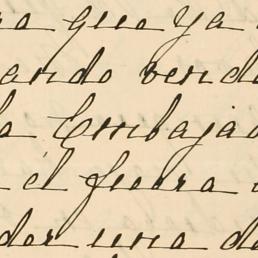 que ya
ando vend
la Embajad
él fuera
der una de